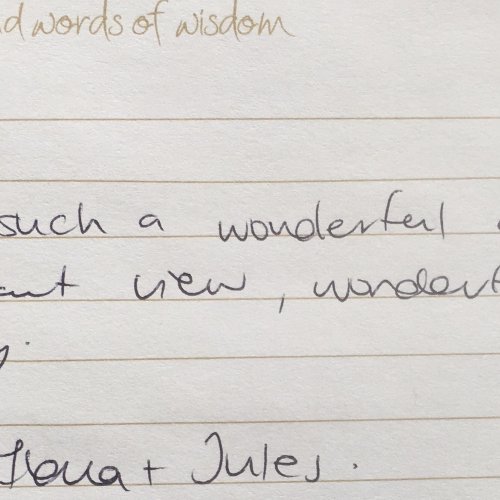 nd words of wisdom
such a wonderful
view, wonderf
+ Jules.